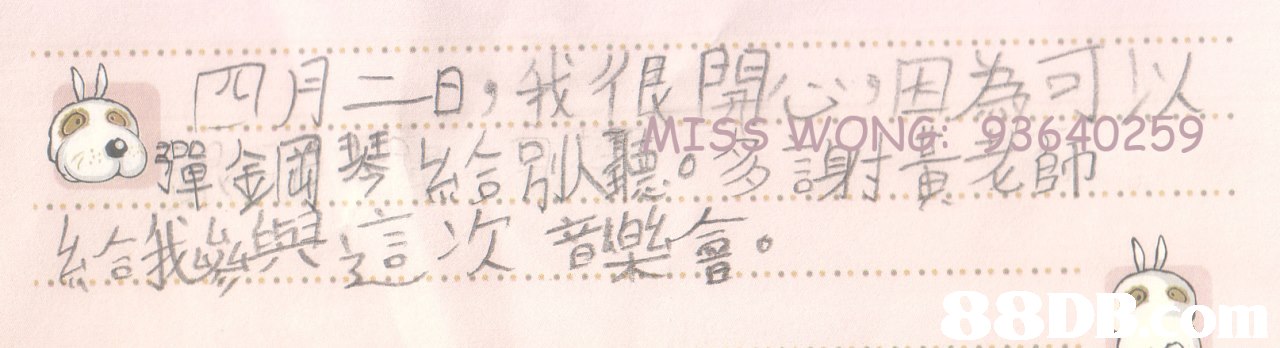 四月二日，我很開心，因為可以
MISS WONG: 93640259
彈鋼琴給別人聽。多謝黃老師
給我參與這次音樂會。
88DB.com